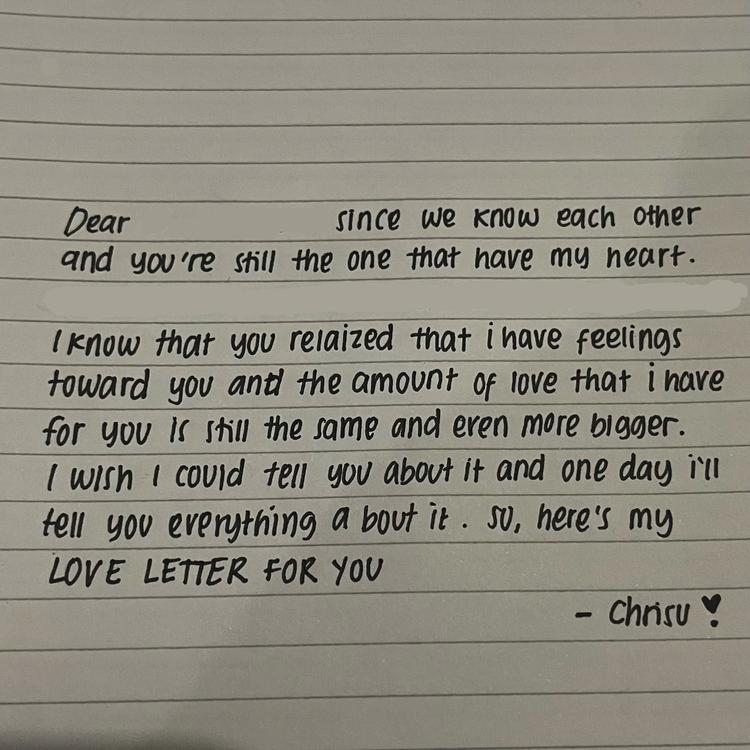 Dear since we know each other
and you're still the one that have my heart.
I know that you relaized that i have feelings
toward you and the amount of love that i have
for you is still the same and even more bigger.
I wish I could tell you about it and one day i'll
tell you everything a bout it. so, here's my
LOVE LETTER FOR YOU
- Chrisu